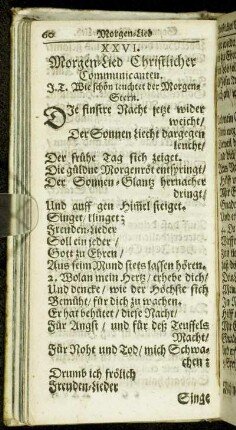 60 Morgen-Lied
XXVI.
Morgen-Lied Christlicher
Communicanten.
J.T. Wie schön leuchtet der Morgen-
Stern.
DJe finstre Nacht jetzt wider
weicht/
Der Sonnen Liecht dargegen
leucht/
Der frühe Tag sich zeiget.
Die güldne Morgenröt entspringt/
Der Sonnen-Glantz hernacher
dringt/
Und auff gen Him̃el steiget.
Singet/ klinget;
Freuden-Lieder
Soll ein jeder/
Gott zu Ehren/
Aus seim Mund stets lassen hören.
2. Wolan mein Hertz/ erhebe dich/
Und dencke/ wie der Höchste sich
Bemüht/ für dich zu wachen.
Er hat behütet/ diese Nacht/
Für Angst/ und für deß Teuffels
Macht/
Für Noht und Tod/ mich Schwa-
chen:
Drumb ich frölich
Freuden-Lieder
Singe